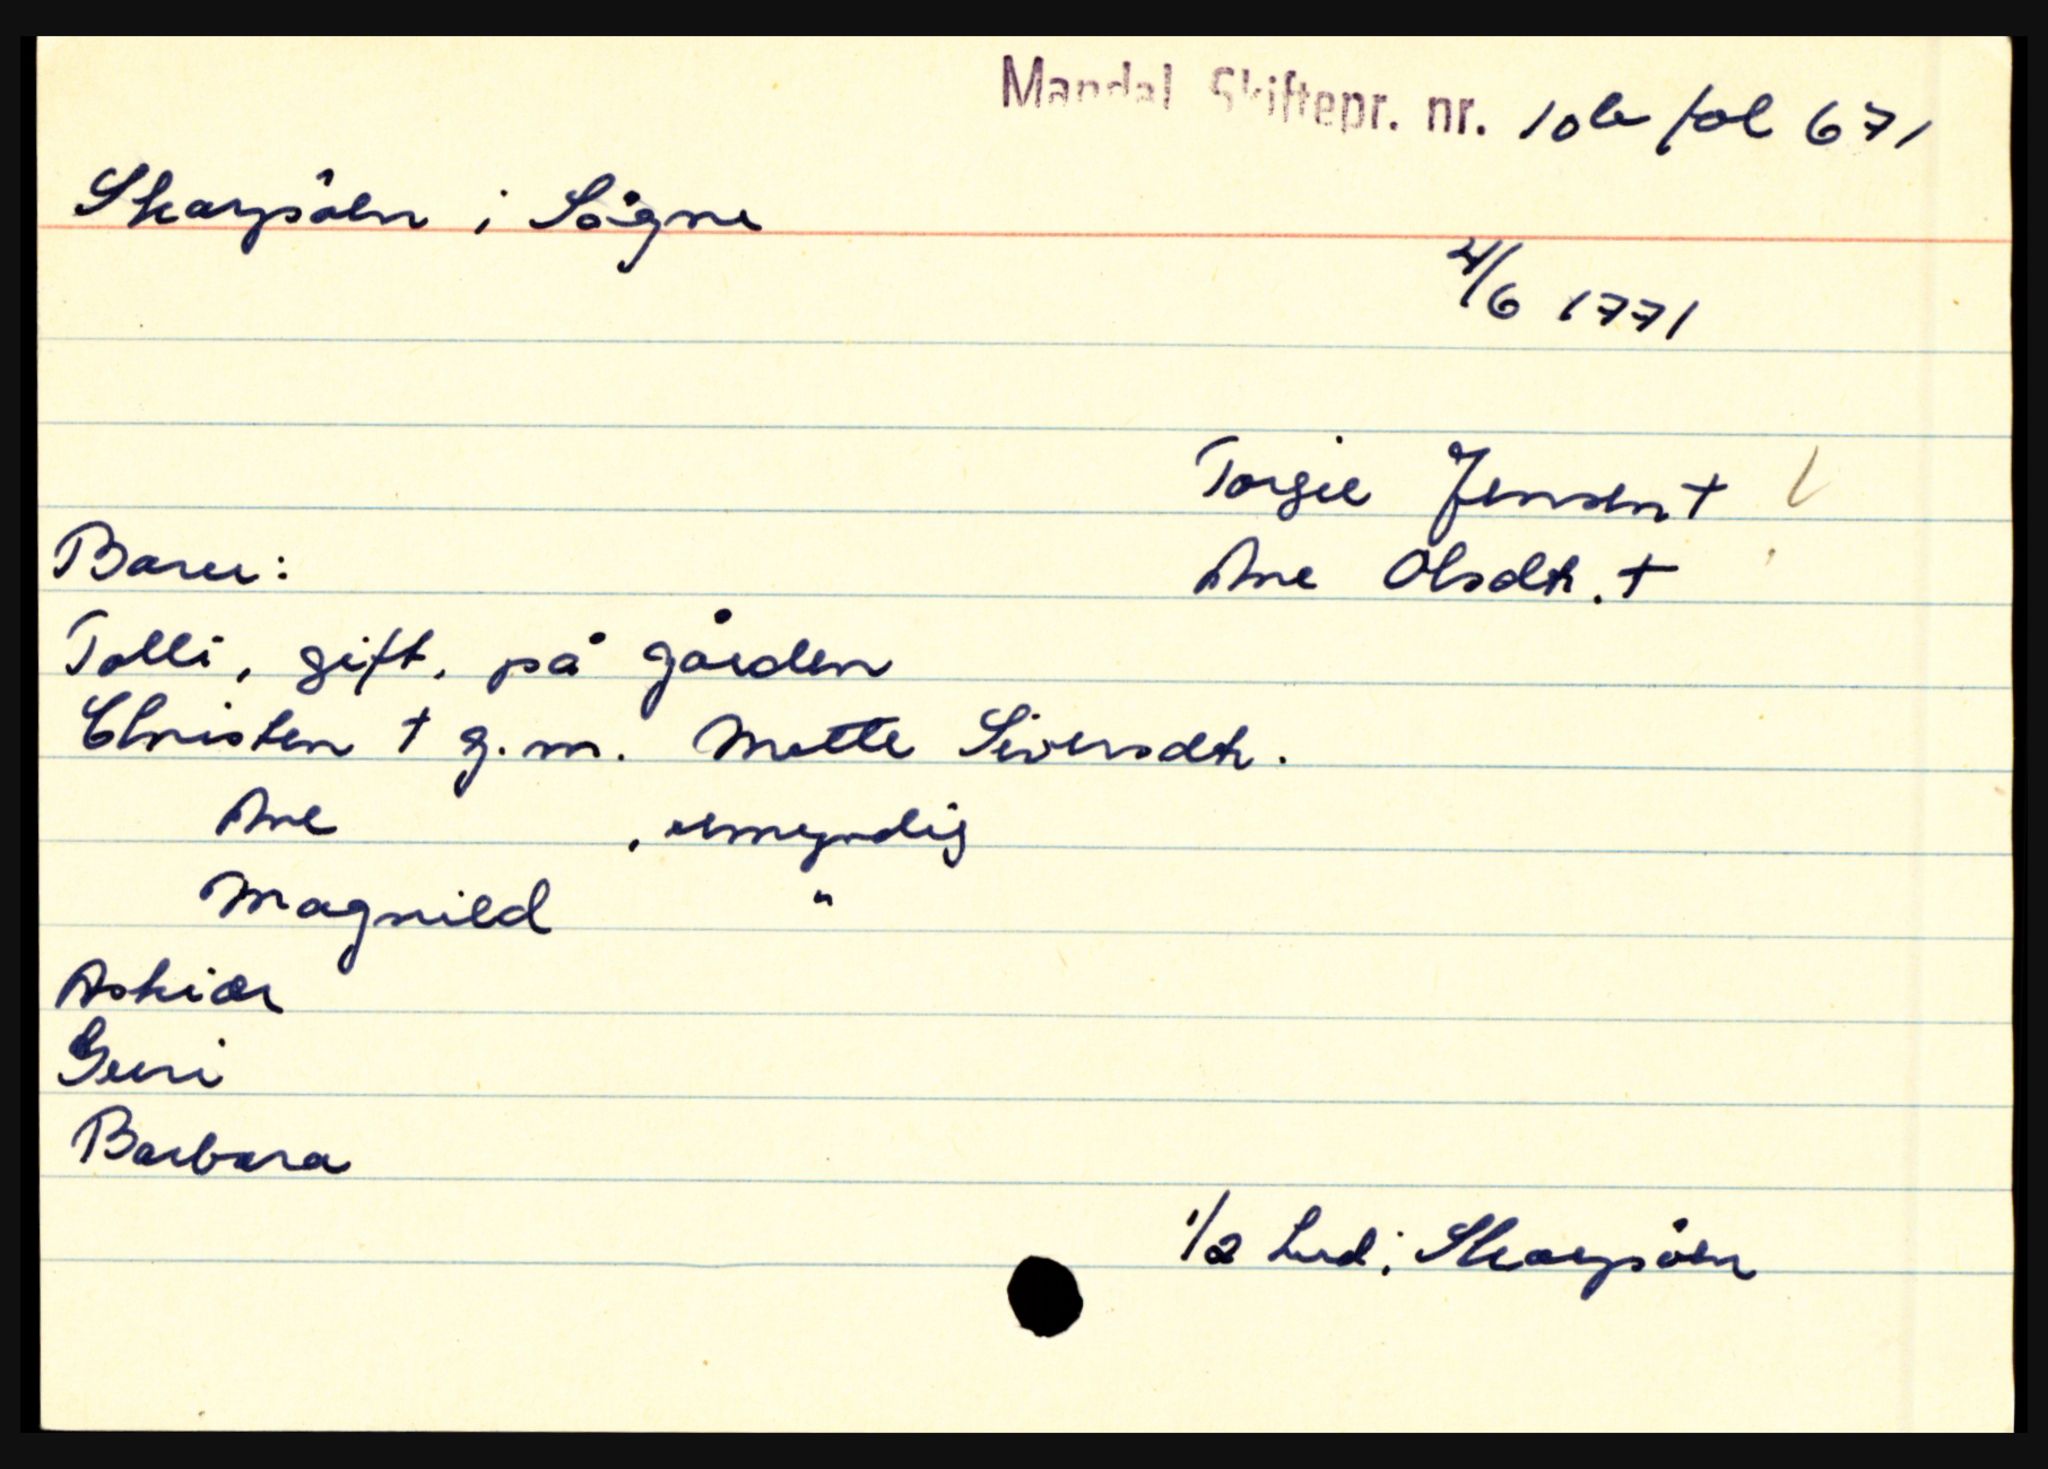 Mandal Skiftepr. nr. 10b fol 671
Skarpsöen i Sögne
4/6 1771
Torgie Jensen †
Ane Olsdtr. †
Barn:
Tolli, gift, på gården
Christen † g.m. Mette Siversdtr.
Ane , umyndig
Magnild "
Askiær
Guri
Barbara
1/2 hud i Skarpsöen